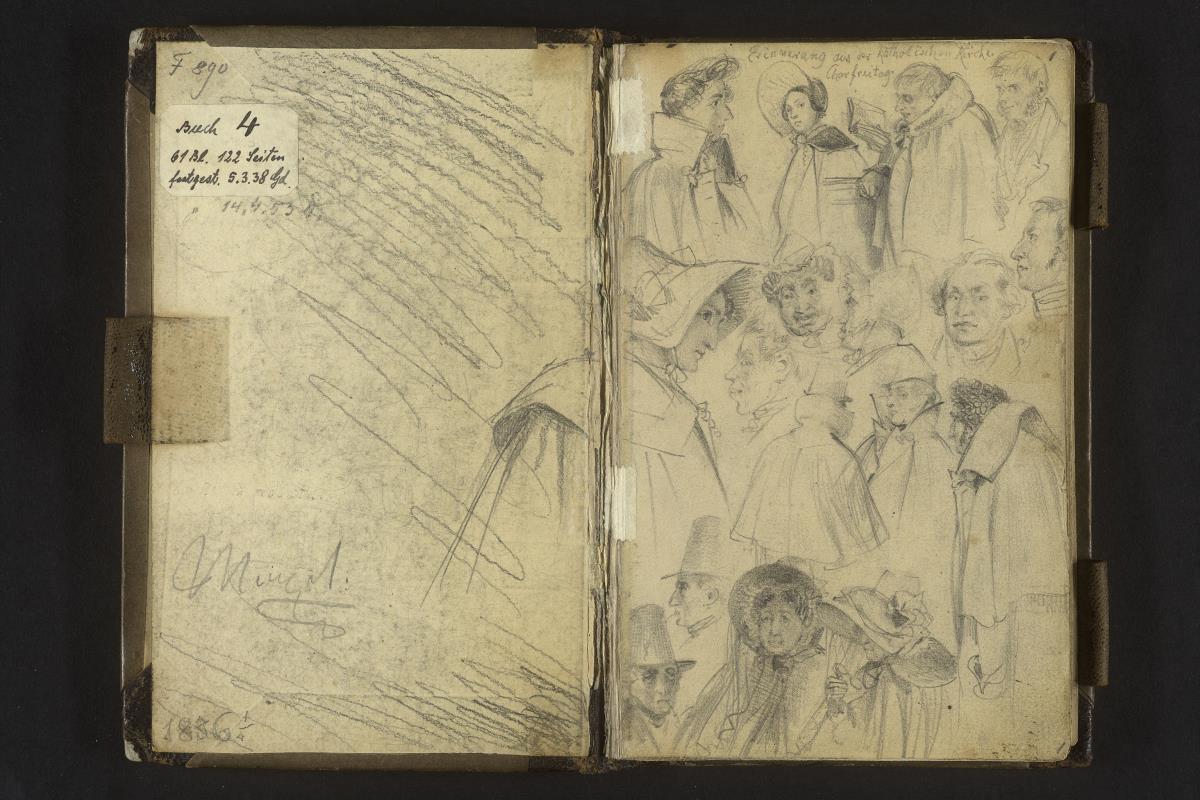 F 890
Buch 4
61 Bl. 122 Seiten
festgest. 5.3.38 Gd.
" 14.4.53
1836
Erinnerung aus der katholischen Kirche
Charfreitag
1